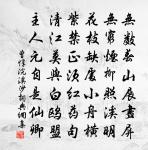 無數春山展畫屏
無窮煙柳照溪明
花枝缺處小舟橫
紫禁正須紅藥句
清江莫與白鷗盟
主人元自是仙卿
浣溪沙